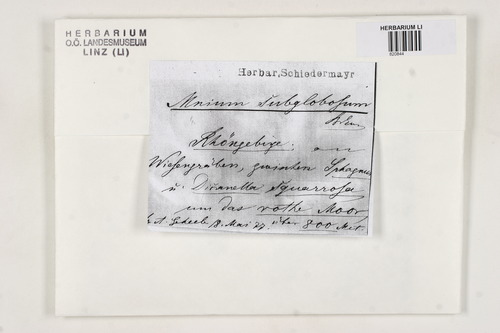 HERBARIUM
O.Ö. LANDESMUSEUM
LINZ (LI)
HERBARIUM LI
Herbar, Schiedermayr
Mnium subglobosum
Rhöngebirge: am
Wiesengräben, zwischen Sphagnum
u. Dicranella squarrosa
um das rothe Moor
Geheeb 8. Mai 77. über 800 Met.